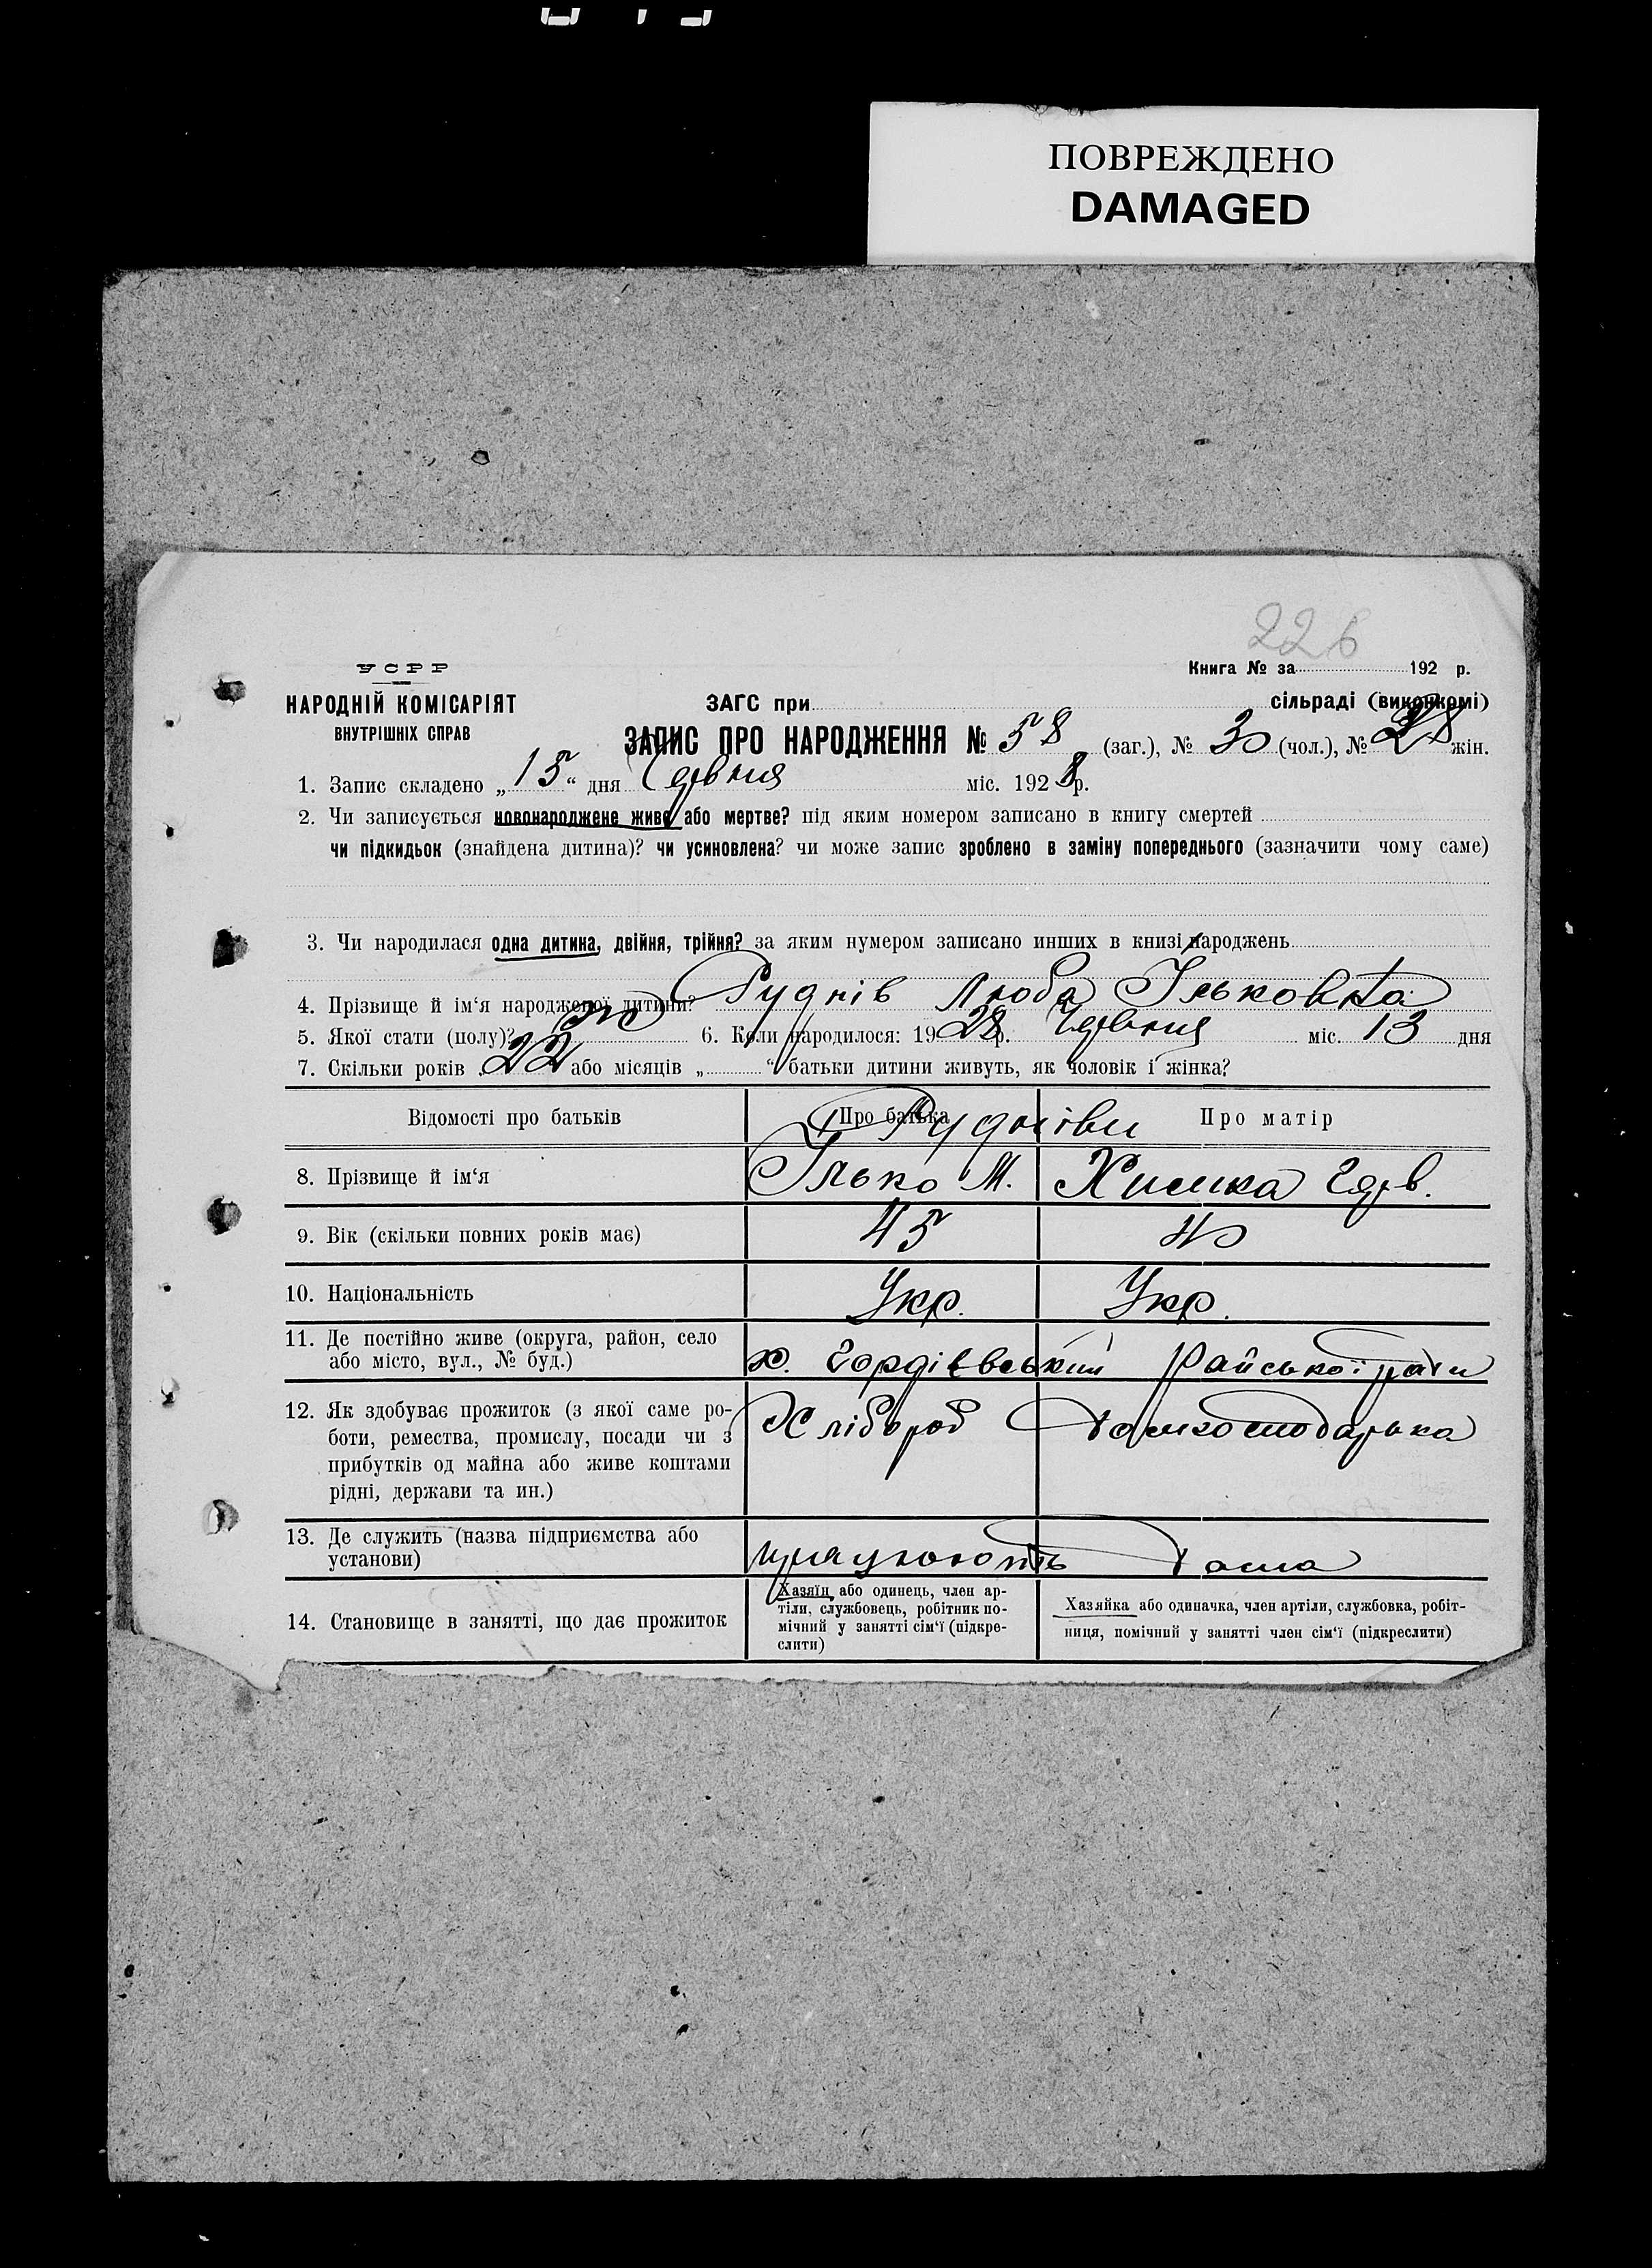 ПОВРЕЖДЕНО
DAMAGED
226
УСРР
Книга № за 192 р.
НАРОДНІЙ КОМІСАРІЯТ
ВНУТРІШНІХ СПРАВ
ЗАГС при сільраді (виконкомі)
ЗАПИС ПРО НАРОДЖЕННЯ № 58 (заг.), № 30 (чол.), № 28 жін.
1. Запис складено „15“ дня Червня міс. 1928 р.
2. Чи записується новонароджене живе або мертве? під яким номером записано в книгу смертей
чи підкидьок (знайдена дитина)? чи усиновлена? чи може запис зроблено в заміну попереднього (зазначити чому саме)
3. Чи народилася одна дитина, двійня, трійня? за яким нумером записано инших в книзі народжень
4. Прізвище й ім‘я народженої дитини? Руднів Люба Ільковна
5. Якої стати (полу)? ж 6. Коли народилося: 1928 р. Червня міс. 13 дня
7. Скільки років „22 або місяців „ “ батьки дитини живуть, як чоловік і жінка?
Відомості про батьків Про батька Про матір
Рудніви
8. Прізвище й ім‘я Ілько М. Химка
9. Вік (скільки повних років має) 45 40
10. Національність Укр. Укр.
11. Де постійно живе (округа, район, село
або місто, вул., № буд.) х. Гордієвський Райської ради
12. Як здобуває прожиток (з якої саме ро-
боти, ремества, промислу, посади чи з
прибутків од майна або живе коштами
рідні, держави та ин.) Хлібороб Домгосподарька
13. Де служить (назва підприємства або
установи) працюють дома
14. Становище в занятті, що дає прожиток
Хазяїн або одинець, член ар-
тіли, службовець, робітник по-
мічний у занятті сім‘ї (підкре-
слити)
Хазяйка або одиначка, член артіли, службовка, робіт-
ниця, помічний у занятті член сім‘ї (підкреслити)